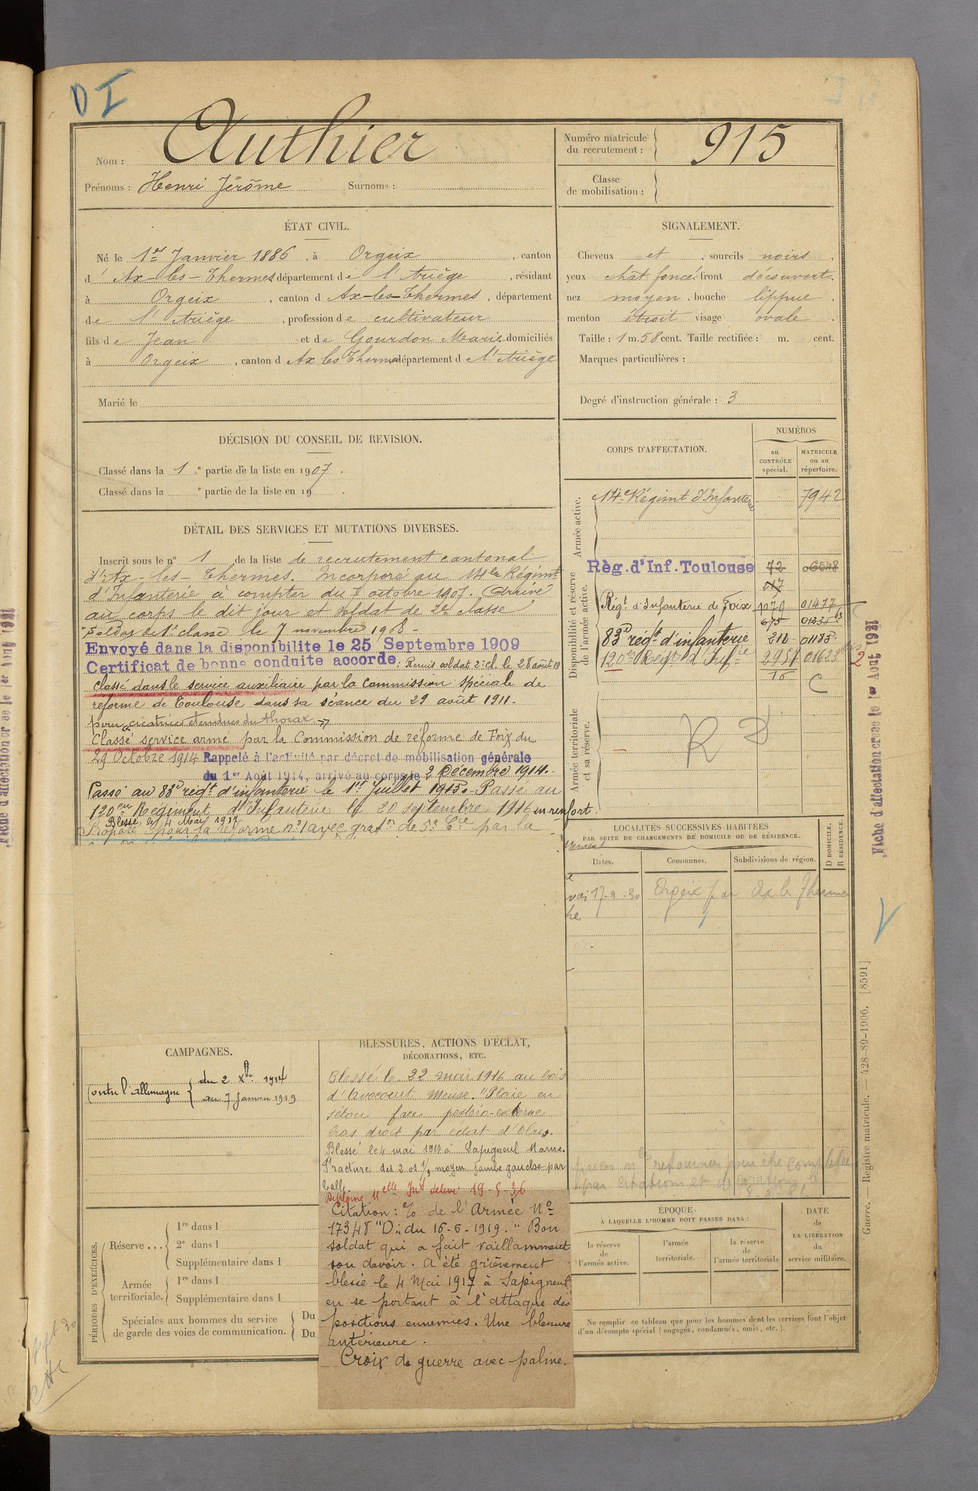 D I
Nom : Authier
Prénoms : Henri Jérôme Surnoms :
Numéro matricule du recrutement : 915
Classe de mobilisation :
ÉTAT CIVIL.
Né le 1er Janvier 1886, à Orgeix, canton
d' Ax-les-Thermes département de l'Ariège, résidant
à Orgeix, canton d Ax-les-Thermes, département
de l'Ariège, profession de cultivateur
fils de Jean et de Gourdon Marie domiciliés
à Orgeix, canton d Ax les Thermes département de l'Ariège
Marié le
SIGNALEMENT.
Cheveux et , sourcils noirs,
yeux chât foncé, front découvert,
nez moyen, bouche lippue,
menton étroit visage ovale.
Taille : 1 m. 58 cent. Taille rectifiée : m. cent.
Marques particulières :
Degré d'instruction générale : 3
DÉCISION DU CONSEIL DE REVISION.
Classé dans la 1 re partie de la liste en 1907.
Classé dans la e partie de la liste en 19 .
DÉTAIL DES SERVICES ET MUTATIONS DIVERSES.
Inscrit sous le n° 1 de la liste de recrutement cantonal
d'Ax-les-Thermes. Incorporé au 14e Régiment
d'Infanterie à compter du 7 octobre 1907. Arrivé
au corps le dit jour et soldat de 2e classe
Soldat de 1e classe le 7 novembre 1908 -
Envoyé dans la disponibilite le 25 Septembre 1909
Certificat de bonne conduite accorde. Remis soldat 2e cl. le 28 août 19
Classé dans le service auxiliaire par la Commission spéciale de
réforme de Toulouse dans sa séance du 29 août 1911.
pour cicatrices étendues du thorax
Classé service armé par la Commission de réforme de Foix du
29 Octobre 1914 Rappelé à l'activité par décret de mobilisation générale
du 1er Août 1914, arrivé au corps le 2 Décembre 1914.-
Passé au 83e régt d'infanterie le 1er Juillet 1915.- Passé au
120e Régiment d'Infanterie le 20 septembre 1916 en renfort.
Blessé le 4 Mai 1917
Proposé pour la réforme n° 1 avec grat on de 5e Cie par la
CORPS D'AFFECTATION.
NUMÉROS
au CONTRÔLE spécial.
MATRICULE ou au répertoire.
Armée active.
14e Régiment d'Infanterie 7942
Disponibilité et réserve de l'armée active.
Rég. d'Inf. Toulouse 72 06548
Régt d'Infanterie de Foix 1070 01477
675
83e régt d'infanterie 210 01135
120e Régt d'Infie 2958
C
Armée territoriale et sa réserve.
R D
LOCALITÉS SUCCESSIVES HABITÉES
PAR SUITE DE CHANGEMENTS DE DOMICILE OU DE RÉSIDENCE.
Dates. Communes. Subdivisions de région. D DOMICILE. R RÉSIDENCE.
Orgeix par Ax les Thermes
Fiche d'affectation créée le 1er Août 1921
CAMPAGNES.
Contre l'Allemagne { du 2 Xbre 1914
au 7 Janvier 1919
BLESSURES, ACTIONS D'ÉCLAT,
DÉCORATIONS, ETC.
Blessé le 22 mai 1916 au bois
d'Avocourt Meuse. "Plaie en
séton face postéro-externe
bras droit par éclat d'obus.
Blessé le 4 mai 1917 à Sapigneul Marne.
Fracture des 2 os 1/3 moyen jambe gauche par
balle
Citation : O/ de l'Armée N°
17348 "D" du 16-6-1919. "Bon
soldat qui a fait vaillamment
son devoir. A été grièvement
blessé le 4 Mai 1917 à Sapigneul
en se portant à l'attaque des
positions ennemies. Une blessure
antérieure.
Croix de guerre avec palme.
PÉRIODES D'EXERCICES.
Réserve ... { 1re dans l
2e dans l
Supplémentaire dans l
Armée territoriale. { 1re dans l
Supplémentaire dans l
Spéciales aux hommes du service de garde des voies de communication. { Du
Du
ÉPOQUE
À LAQUELLE L'HOMME DOIT PASSER DANS :
la réserve de l'armée active.
l'armée territoriale.
la réserve de l'armée territoriale
DATE de LA LIBÉRATION du service militaire.
Ne remplir ce tableau que pour les hommes dont les services font l'objet
d'un décompte spécial (engagés, condamnés, omis, etc.).
Guerre. — Registre matricule. — 428-89-1906. [8591]